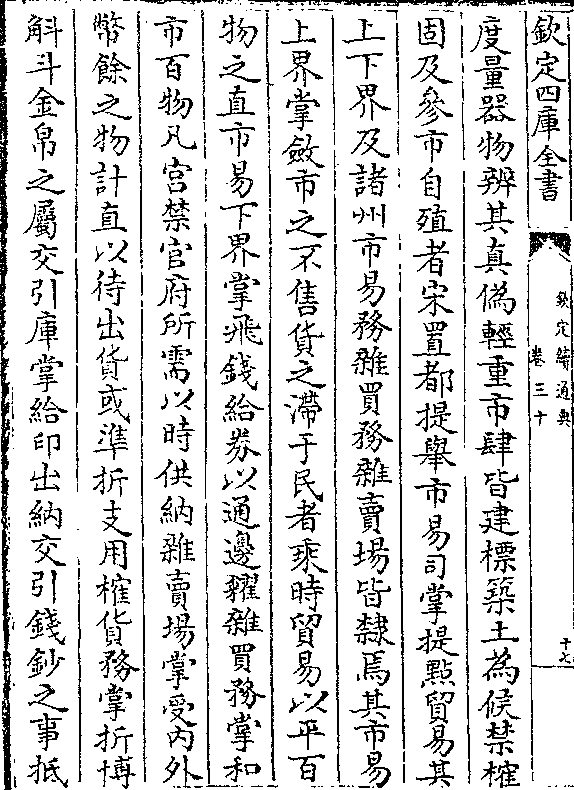 欽定四庫全書
欽定續通典
卷三十
十七
度量器物辨其真偽輕重市肆皆建標築土為候禁榷
固及參市自殖者宋置都提舉市易司掌提點貿易其
上下界及諸州市易務雜買務雜賣場皆隸焉其市易
上界掌斂市之不售貨之滯于民者乘時貿易以平百
物之直市易下界掌飛錢給券以通邊糴雜買務掌和
市百物凡宮禁官府所需以時供納雜賣場掌受內外
幣餘之物計直以待出貨或準折支用榷貨務掌折博
斛斗金帛之屬交引庫掌給印出納交引錢鈔之事抵